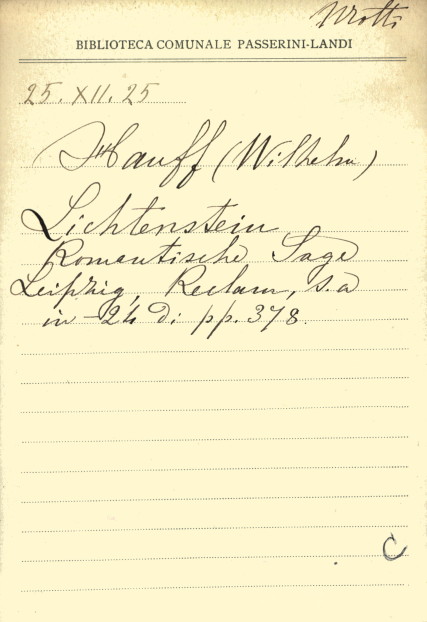 Motti
BIBLIOTECA COMUNALE PASSERINI-LANDI
25. XII. 25
Hauff (Wilhelm)
Lichtenstein
Romantische Sage
Leipzig, Reclam, s.a
in-24 di pp. 378.
C